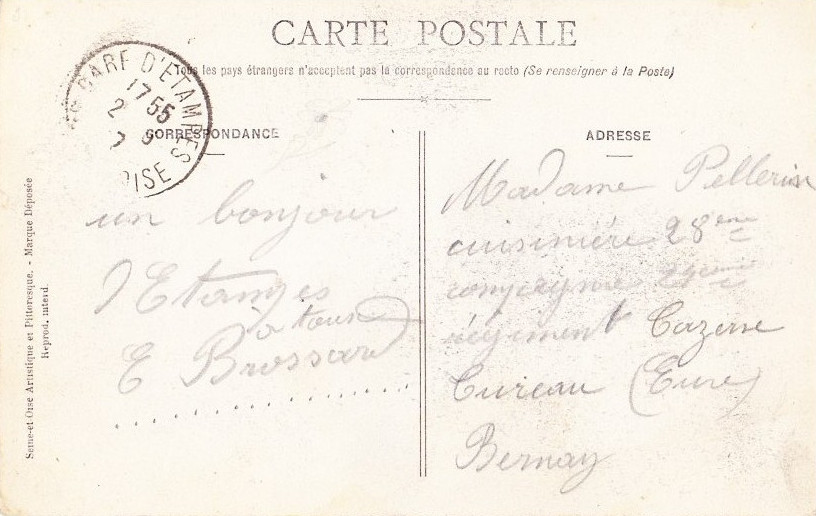 CARTE POSTALE
Tous les pays étrangers n'acceptent pas la correspondance au recto (Se renseigner à la Poste)
GARE D'ETAMPES
17 55
2 9
OISE
CORRESPONDANCE
un bonjour
d'Etampes
à tous
E Brossard
ADRESSE
Madame Pellerin
cuisinière 28eme
compagnie
régiment Cazerne
Cureau (Eure)
Bernay
Seine-et Oise Artistique et Pittoresque. - Marque Déposée
Reprod. interd.